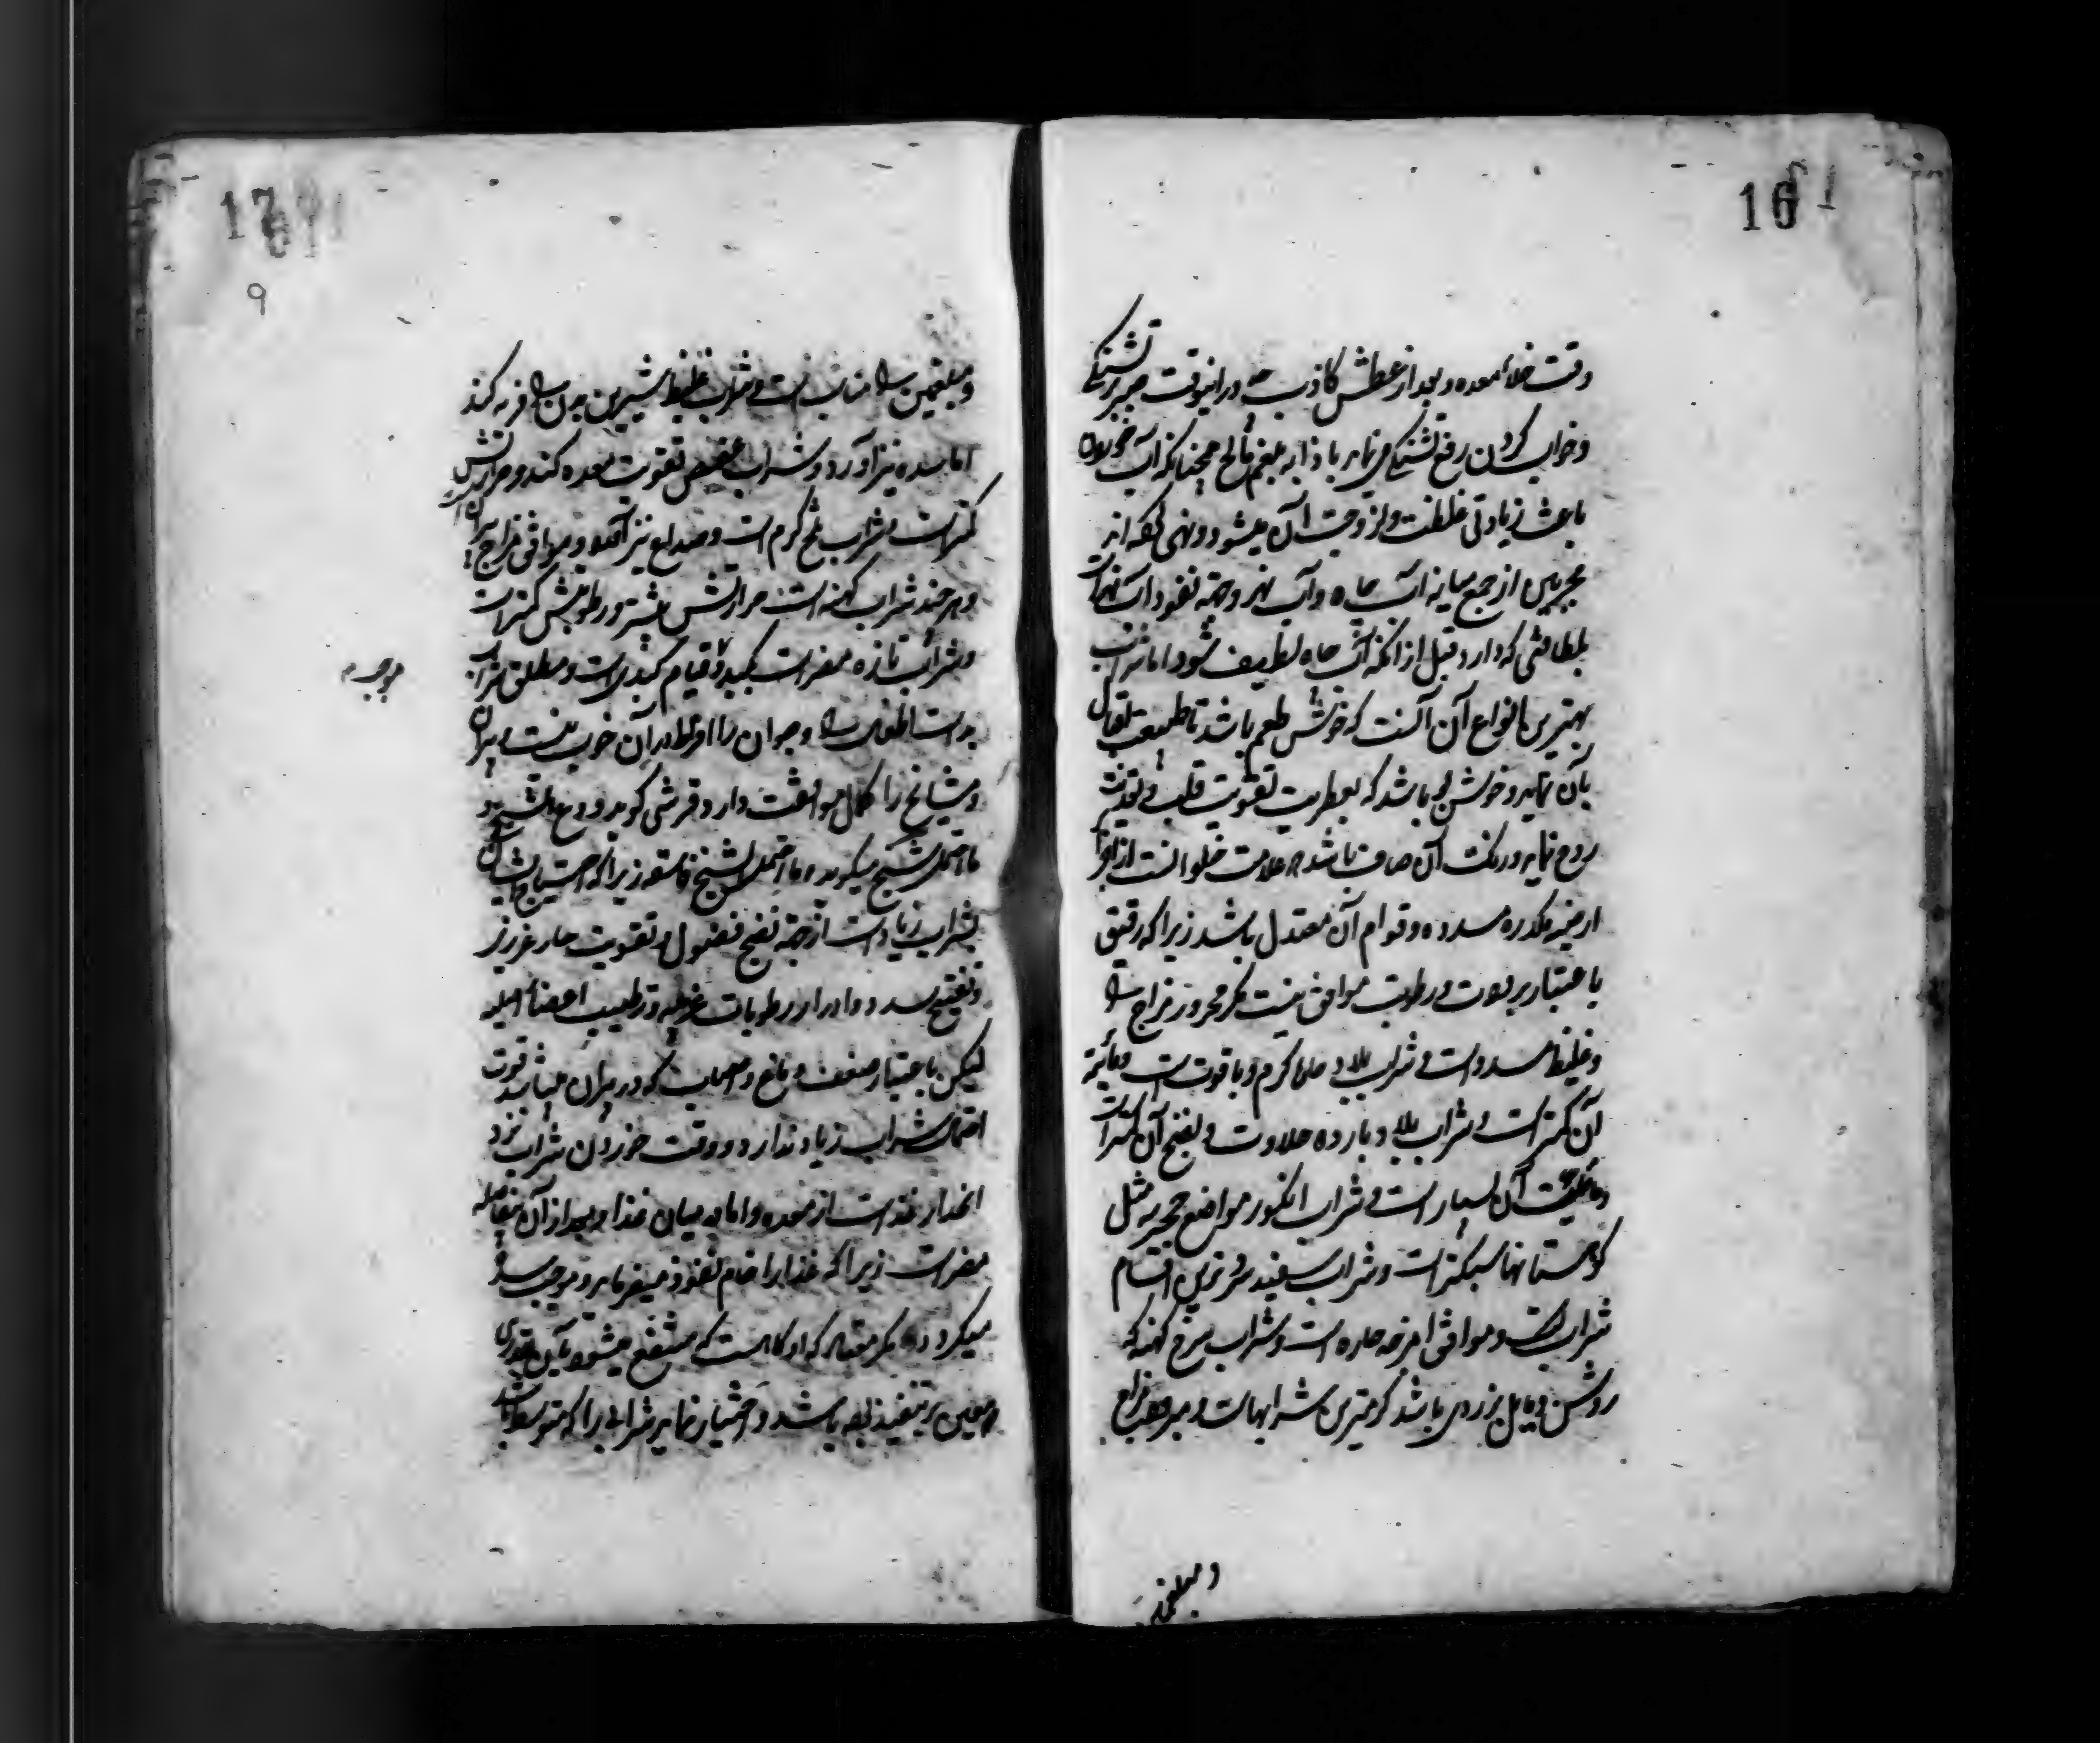 16
وقت خلاء معده و بعد از عطش کاذب و در اینوقت صبر بر تشنگی
و خواب کردن رفع تشنگی می نماید باذابه بلغم مالح همچنانکه آب خوردن
باعث زیادتی غلظت و لزوجت آن میشود و نهی کرده اند
مجربین از جمع میانه آب چاه و آب نهر و جهة نفوذ آب نهر است
بلطافتی که دارد قبل از آنکه آب چاه لطیف شود اما شراب
بهترین انواع آن آنست که خوش طعم باشد تا طبیعت اقبال
بآن نماید و خوش بو باشد که بعطریت تقویت قلب و تغذیه
روح نماید و رنگ آن صاف باشد علامت خلو آنست از اجزا
ارضیه مکدره مسدده و قوام آن معتدل باشد زیرا که رقیق
باعتبار برودت و رطوبت موافق نیست مگر محرور مزاج را
و غلیظ مسدد است و شراب بلاد حاره گرم و با قوت است و مائیة
آن کمتر است و شراب بلاد بارده حلاوت و نضج آن کمتر است
و مائیت آن بسیار است و شراب انگور مواضع حجریه مثل
کوهستانها سبکتر است و شراب سفید سردترین اقسام
شراب است و موافق امزجه حاره است و شراب سرخ کهنه که
روشن و مایل بزردی باشد گرمترین شرابهاست و مرطوب مزاج
و بلغمی
17
9
و بلغمین را مناسب است و شراب غلیظ شیرین بدن را فربه کند
اما سده نیز آورد و شراب عفص تقویت معده کند و حرارتش
کمتر است و شراب تلخ گرم است و صداع نیز آورد و موافق مزاج پیران است
و هر چند شراب کهنه است حرارتش بیشتر و رطوبتش کمتر است
و شراب تازه مضر است بکبد و قیام کبدی است و مطلق شراب
بد است اطفال را و جوان را افراط در آن خوب نیست و پیران
و مشایخ را کمال موافقت دارد و قرشی گوید و
ما احتمل شیخ میگوید و ما احتمل الشیخ فاسقه زیرا که احتیاج ایشان
بشراب زیاد است از جهة نضج فضول و تقویت حار غریزی
و تفتیح سدد و ادرار رطوبات غریبه و ترطیب اعضاء اصلیه
لیکن باعتبار ضعف دماغ و اعصاب که در پیران میباشد قوت
احتمال شراب زیاد ندارد و وقت خوردن شراب نزد
انحدار غذاست از معده و اما در میان غذا و بعد از آن بفاصله
مضر است زیرا که غذا را خام نفوذ میفرماید و موجب سده
میگردد مگر معتاد که او کاهست که منتفع میشود بآن بقدری
که معین بر تنفیذ باشد و اختیار نماید شرابی را که متوسط باشد
موجبه